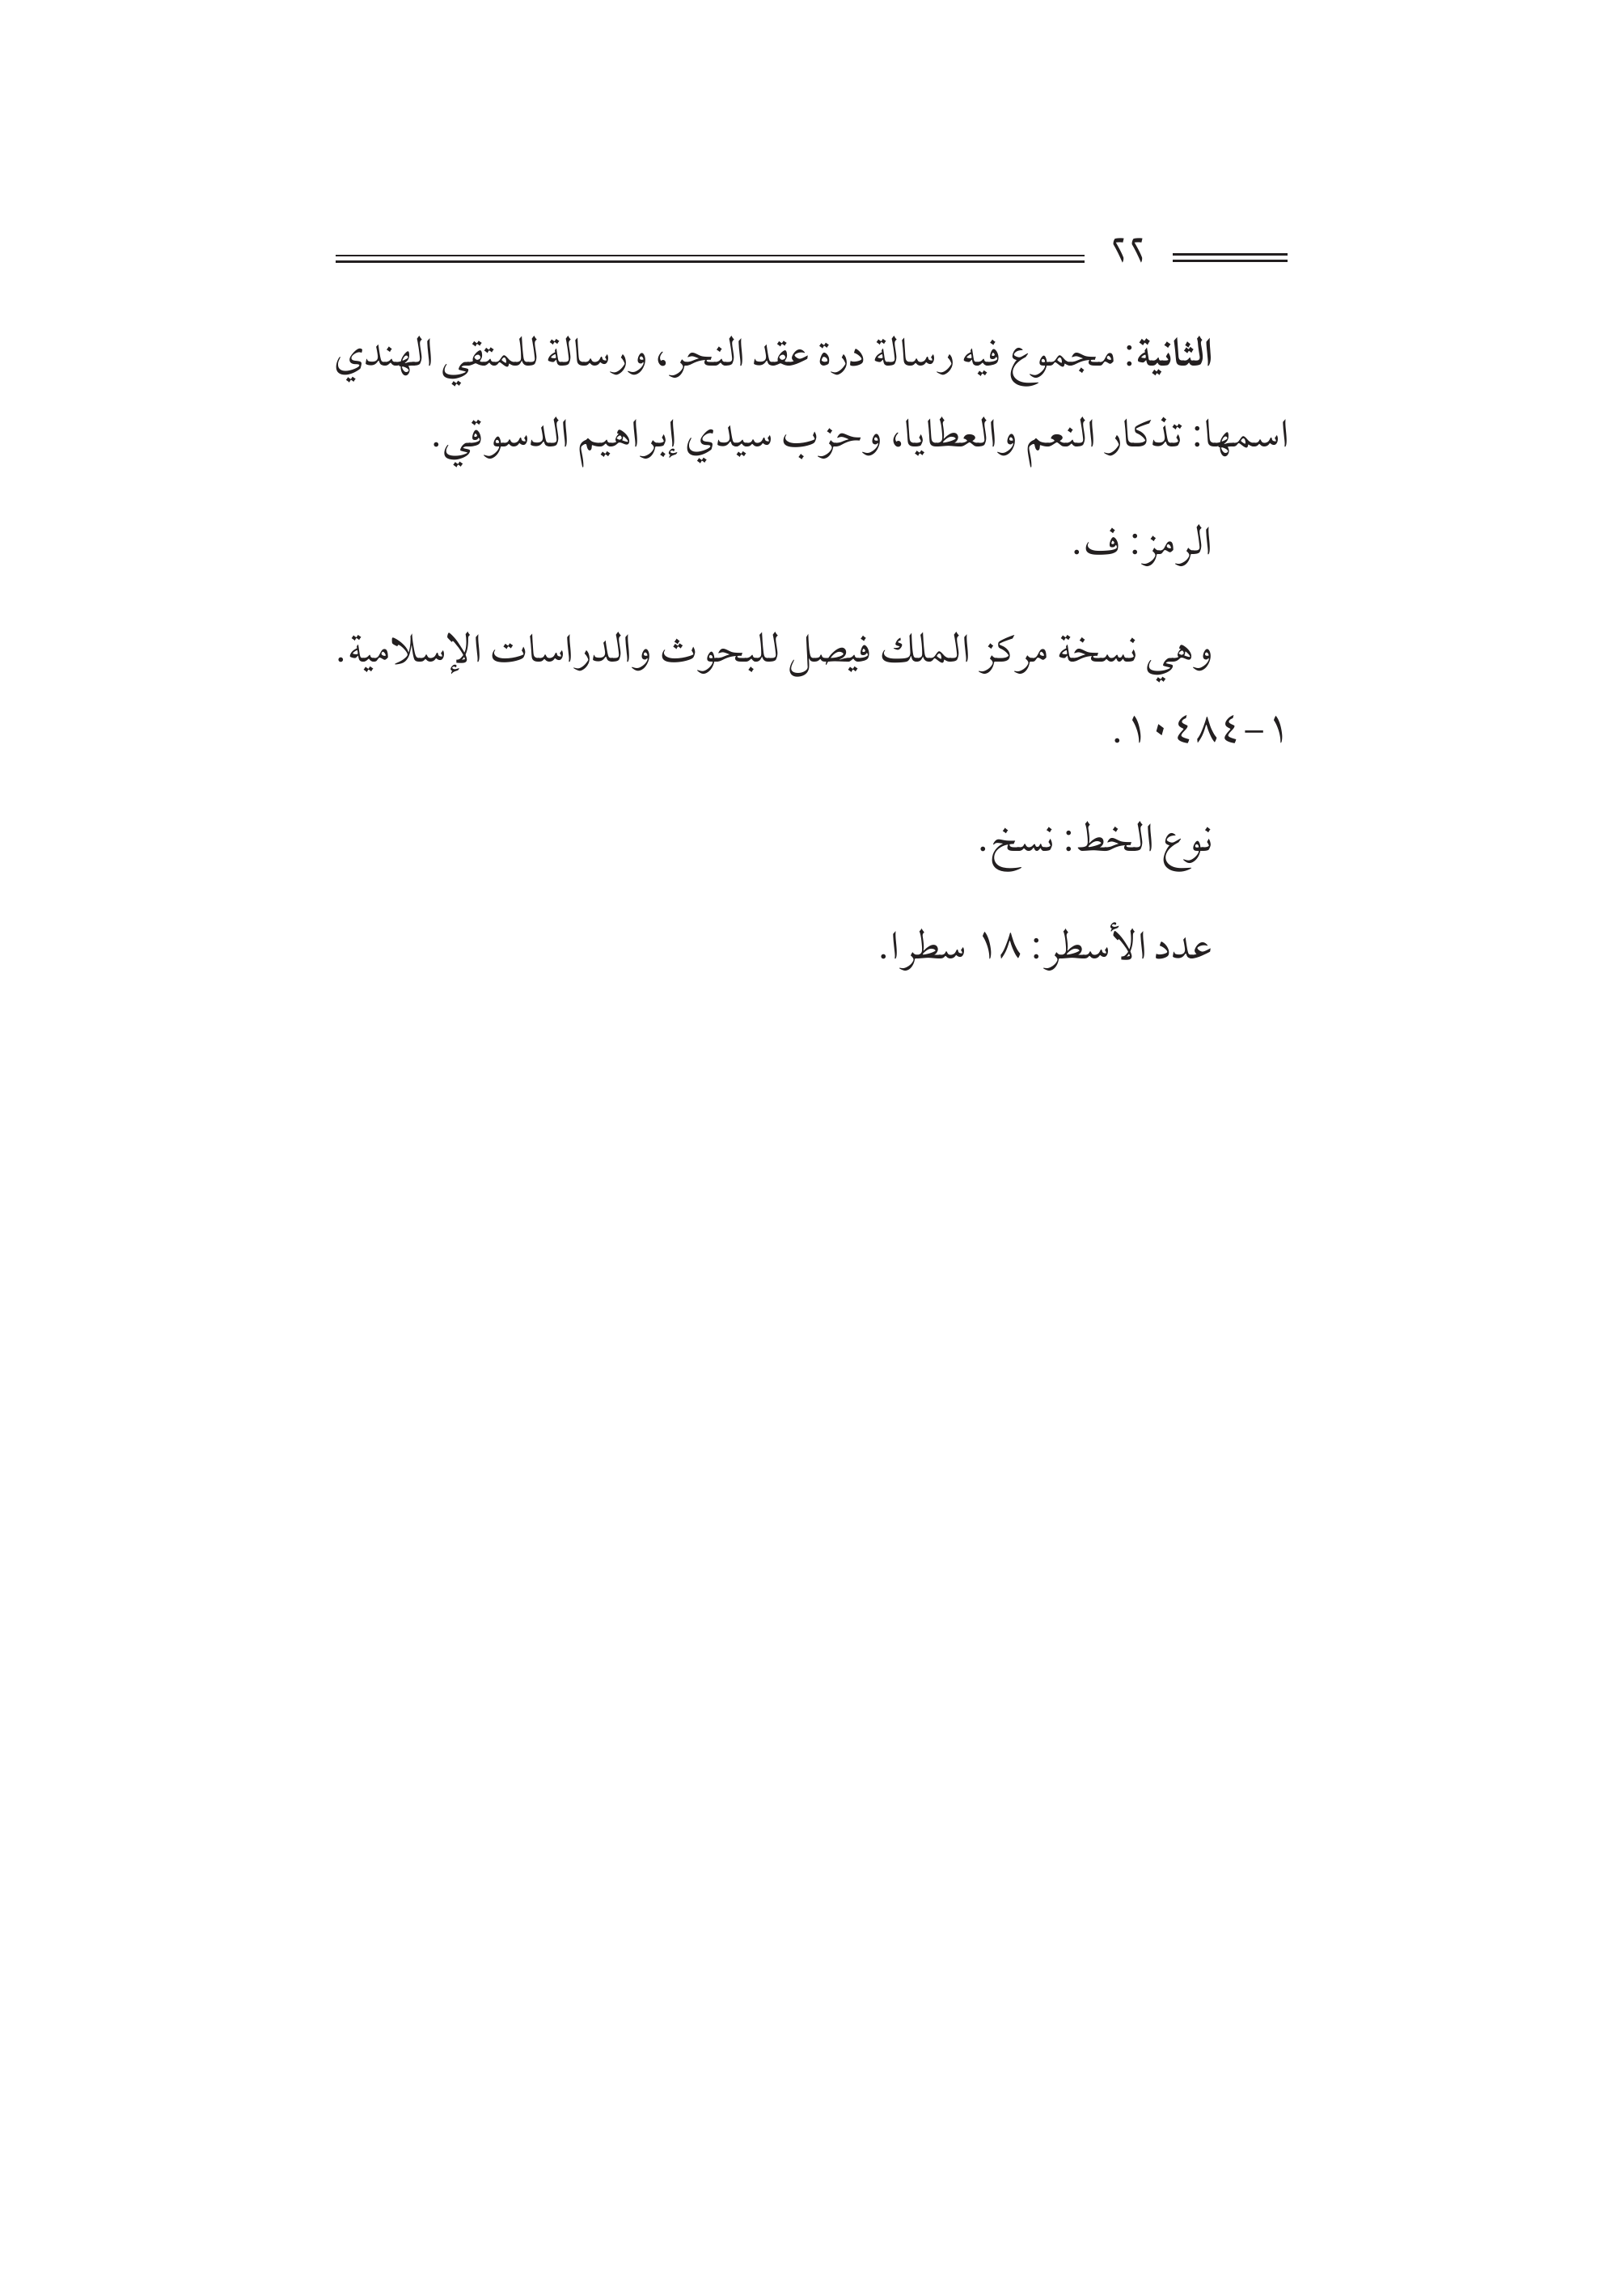 ٢٢
الثانية: مجموع فيه رسالة درة عقد النحر، ورسالة للمتقي الهندي
اسمها: تذكار النعم والعطايا، وحزب سيدي إبراهيم الدسوقي.
الرمز: ف.
وهي نسخة مركز الملك فيصل للبحوث والدراسات الإسلامية.
١-١٠٤٨٤.
نوع الخط: نسخ.
عدد الأسطر: ١٨ سطرا.